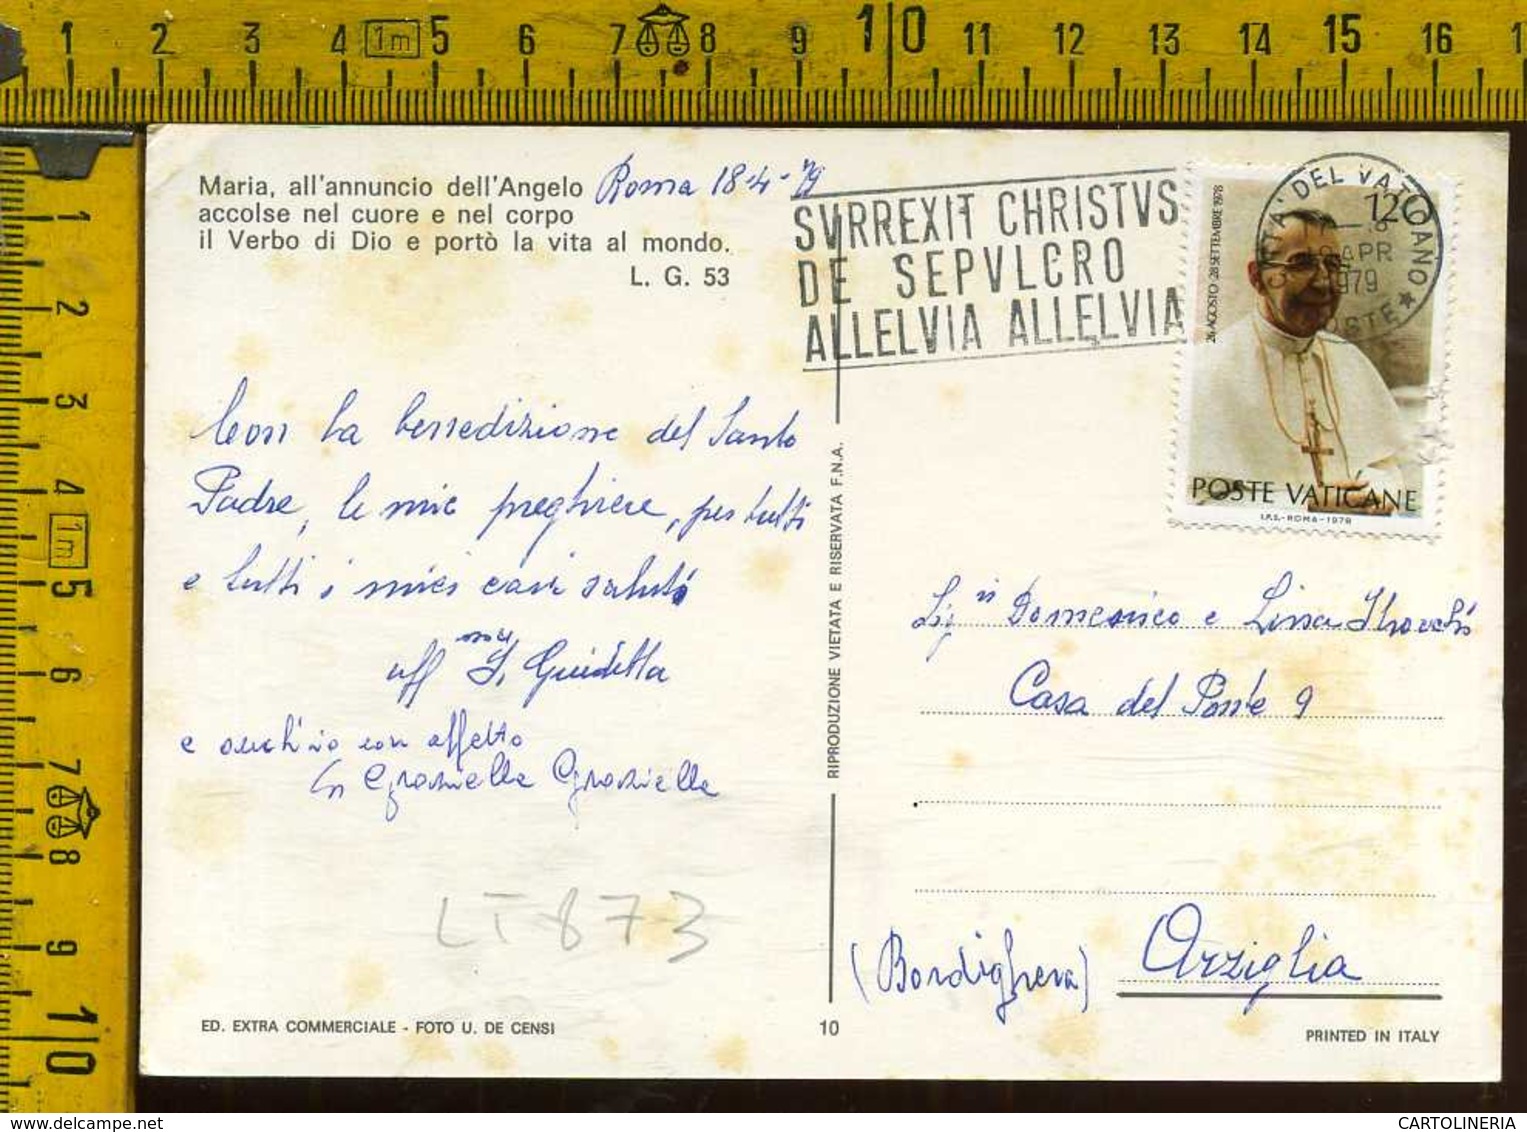 1 2 3 4 1m 5 6 7 8 9 10 11 12 13 14 15 16
1 2 3 4 1m 5 6 7 8 9 10
Maria, all'annuncio dell'Angelo
accolse nel cuore e nel corpo
il Verbo di Dio e portò la vita al mondo.
L. G. 53
Roma 18-4-79
SVRREXIT CHRISTVS
DE SEPVLCRO
ALLELVIA ALLELVIA
CITTA' DEL VATICANO
APR
1979
POSTE
120
26 AGOSTO 28 SETTEMBRE 1978
POSTE VATICANE
I.P.S.-ROMA-1978
Con la benedizione del Santo
Padre, le mie preghiere, per tutti
e tutti i miei cari saluti
aff ma S. Guidetta
e anch'io con affetto
Graziella Graziella
RIPRODUZIONE VIETATA E RISERVATA F.N.A.
Sig ri Domenico e Lina
Casa del Ponte 9
(Bordighera) Arziglia
LT 873
ED. EXTRA COMMERCIALE - FOTO U. DE CENSI
10
PRINTED IN ITALY
www.delcampe.net
CARTOLINERIA